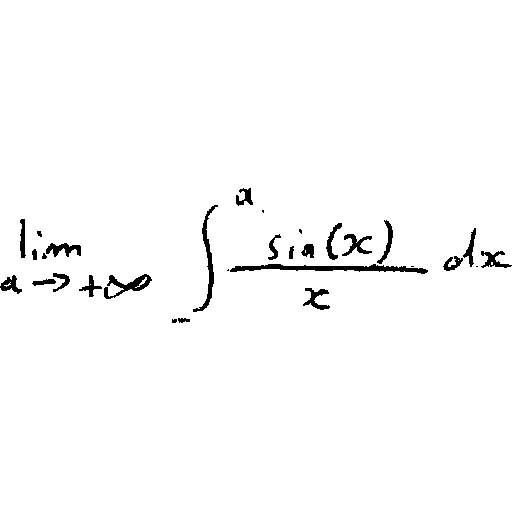 lim a→+∞ ∫ a sin(x)/x dx